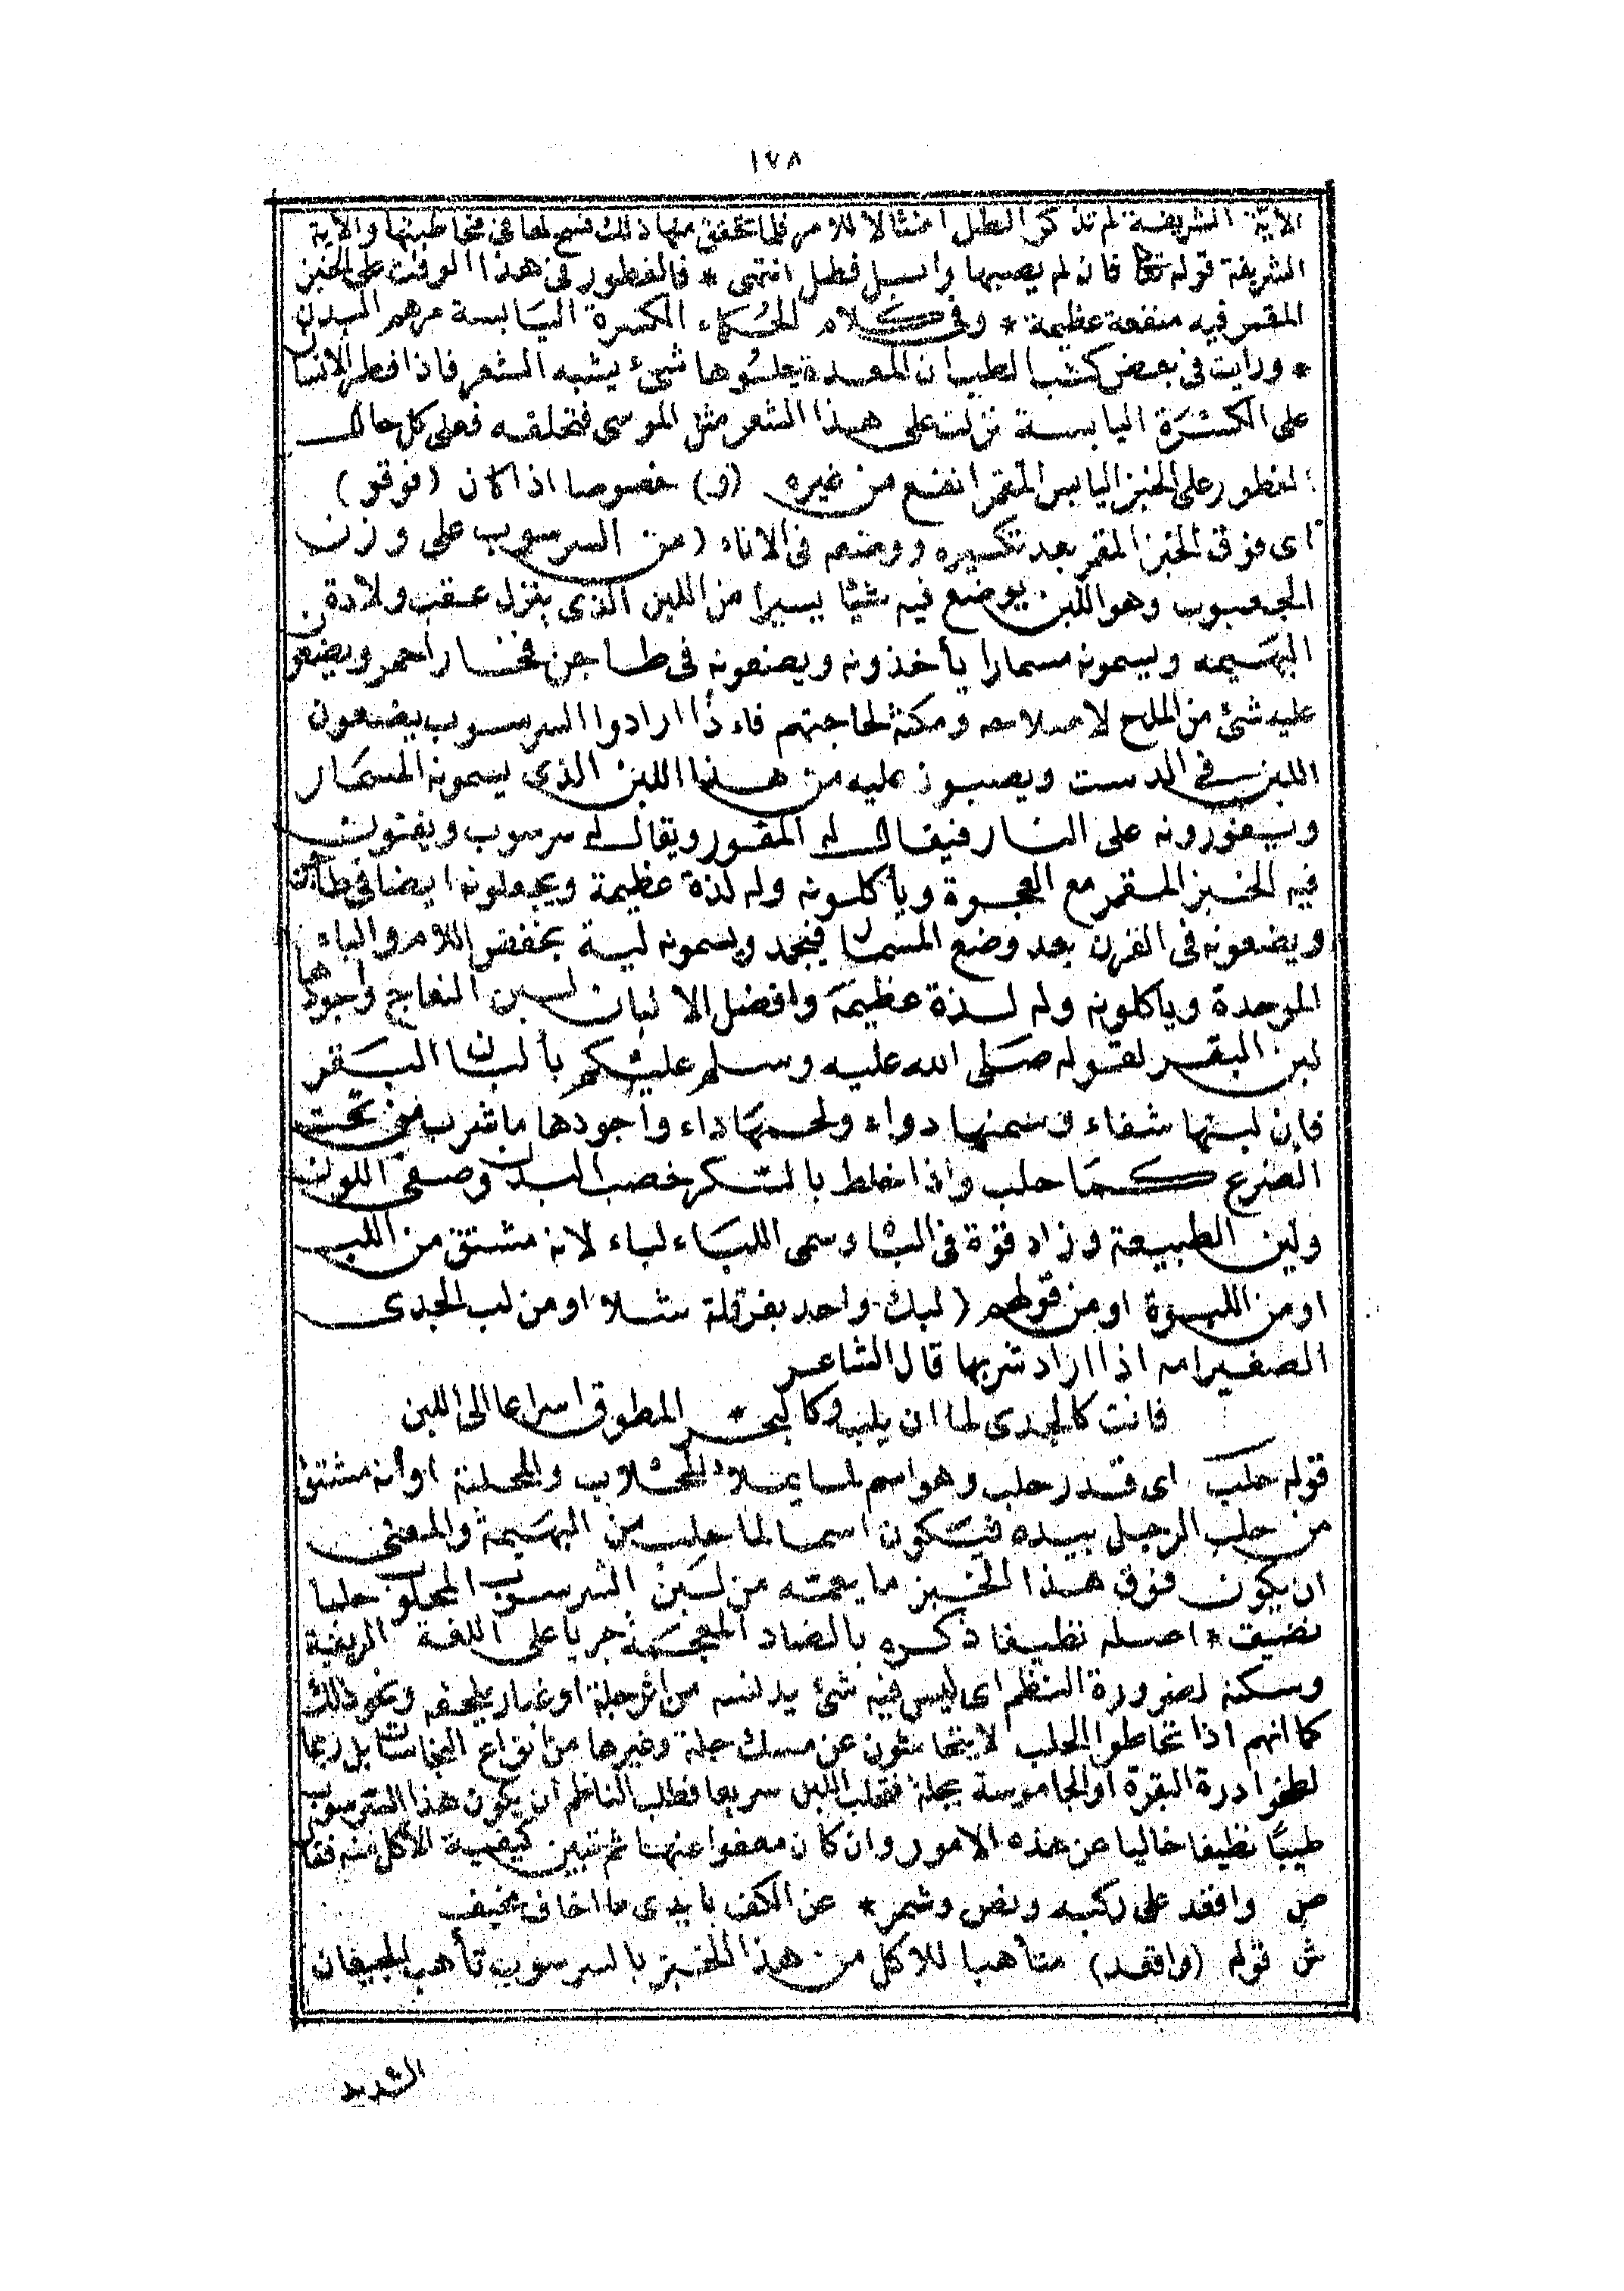 ١٧٨
الاية الشريفة لم تذكر الطل امتثالا للامر فلما تحقق منها ذلك فسح لها فى مخاطبتها والاية
الشريفة قوله تعالى فان لم يصبها وابل فطل انتهى * فالفطور فى هذا الوقت على الخبز
المقمر فيه منفعة عظيمة * وفى كلام الحكماء الكسرة اليابسة مرهم البدن
* ورايت فى بعض كتب الطب ان المعدة يعلوها شئ يشبه الشعر فاذا افطر الانسان
على الكسرة اليابسة نزلت على هذا الشعر مثل الموسى فتحلقه فعلى كل حال
الفطور على الخبز اليابس المقمر انفع من غيره (و) خصوصا اذا كان (فوقو)
اى فوق الخبز المقمر بعد تكسيره ووضعه فى الاناء (من السرسوب على وزن
الجعبوب وهو اللبن يوضع فيه شيًا يسيرا من اللبن الذى ينزل عقب ولادة
البهيمه ويسمونه مسمارا يأخذونه ويصنعونه فى طاجن فخار احمر ويضعون
عليه شئ من الملح لاصلاحه ومكثه لحاجتهم فاءذا ارادوا السرسوب يضعون
اللبن فى الدست ويصبون عليه من هذا اللبن الذى يسمونه المسمار
ويسفورونه على النار فيقال له المفور ويقال له سرسوب ويفتون
فيه الخبز المقمر مع العجوة ويأكلونه وله لذة عظيمة ويجعلونه ايضا فى طاجن
ويضعونه فى الفرن بعد وضع المسمار فيجمد ويسمونه لبة بخفض اللام والباء
الموحدة وياكلونه وله لذة عظيمة وافضل الالبان لبن النعاج واجودها
لبن البقر لقوله صلى الله عليه وسلم عليكم بألبان البقر
فان لبنها شفاء وسمنها دواء ولحمها داء واجودها ما شرب من تحت
الضرع كما حلب واذا خلط بالسكر خصب البدن وصفى اللون
ولين الطبيعة وزاد قوة فى الباه وسمى اللباء لباء لانه مشتق من اللب
او من اللبوة او من قولهم (لبك واحد بفرقلة مثلا او من لب الجدى
الصغير امه اذا اراد شربها قال الشاعر
فانت كالجدى لما ان يلب وكا لبحر * المطوق اسراعا الى اللبن
قوله حلب اى قدر حلب وهو اسم لما يملاء المحلاب والمحلبة او أنه مشتق
من حلب الرجل بيده فيكون اسما لما حلب من البهيمة والمعنى
ان يكون فوق هذا الخبز ما يعمته من لبن السرسوب المحلوب حلبا
نضيف * اصله نظيفا ذكره بالضاد المعجمة جريا على اللغة الريفية
وسكنه لضرورة النظم اى ليس فيه شئ يدنسه من اثر جلة او غبار يلحقه ونحو ذلك
كما انهم اذا تخاطوا المحلب لا يتحاشون عن مسك جلة وغيرها من انواع النجاسات بل ربما
لطخوا درة البقرة او الجاموسة بجلة فقلب اللبن سريعا فطلب الناظم ان يكون هذا السرسوب
طيبًا نظيفا خاليا عن هذه الامور وان كان معفوا عنها ثم تبين كيفية الاكل منه فقال
ص واقعد على ركبه ونص وشمر * عن الكف بايدى ما اخاف مخيف
ش قوله (واقعد) متأهبا للاكل من هذا الخبز بالسرسوب تأهب الجيعان
الشديد